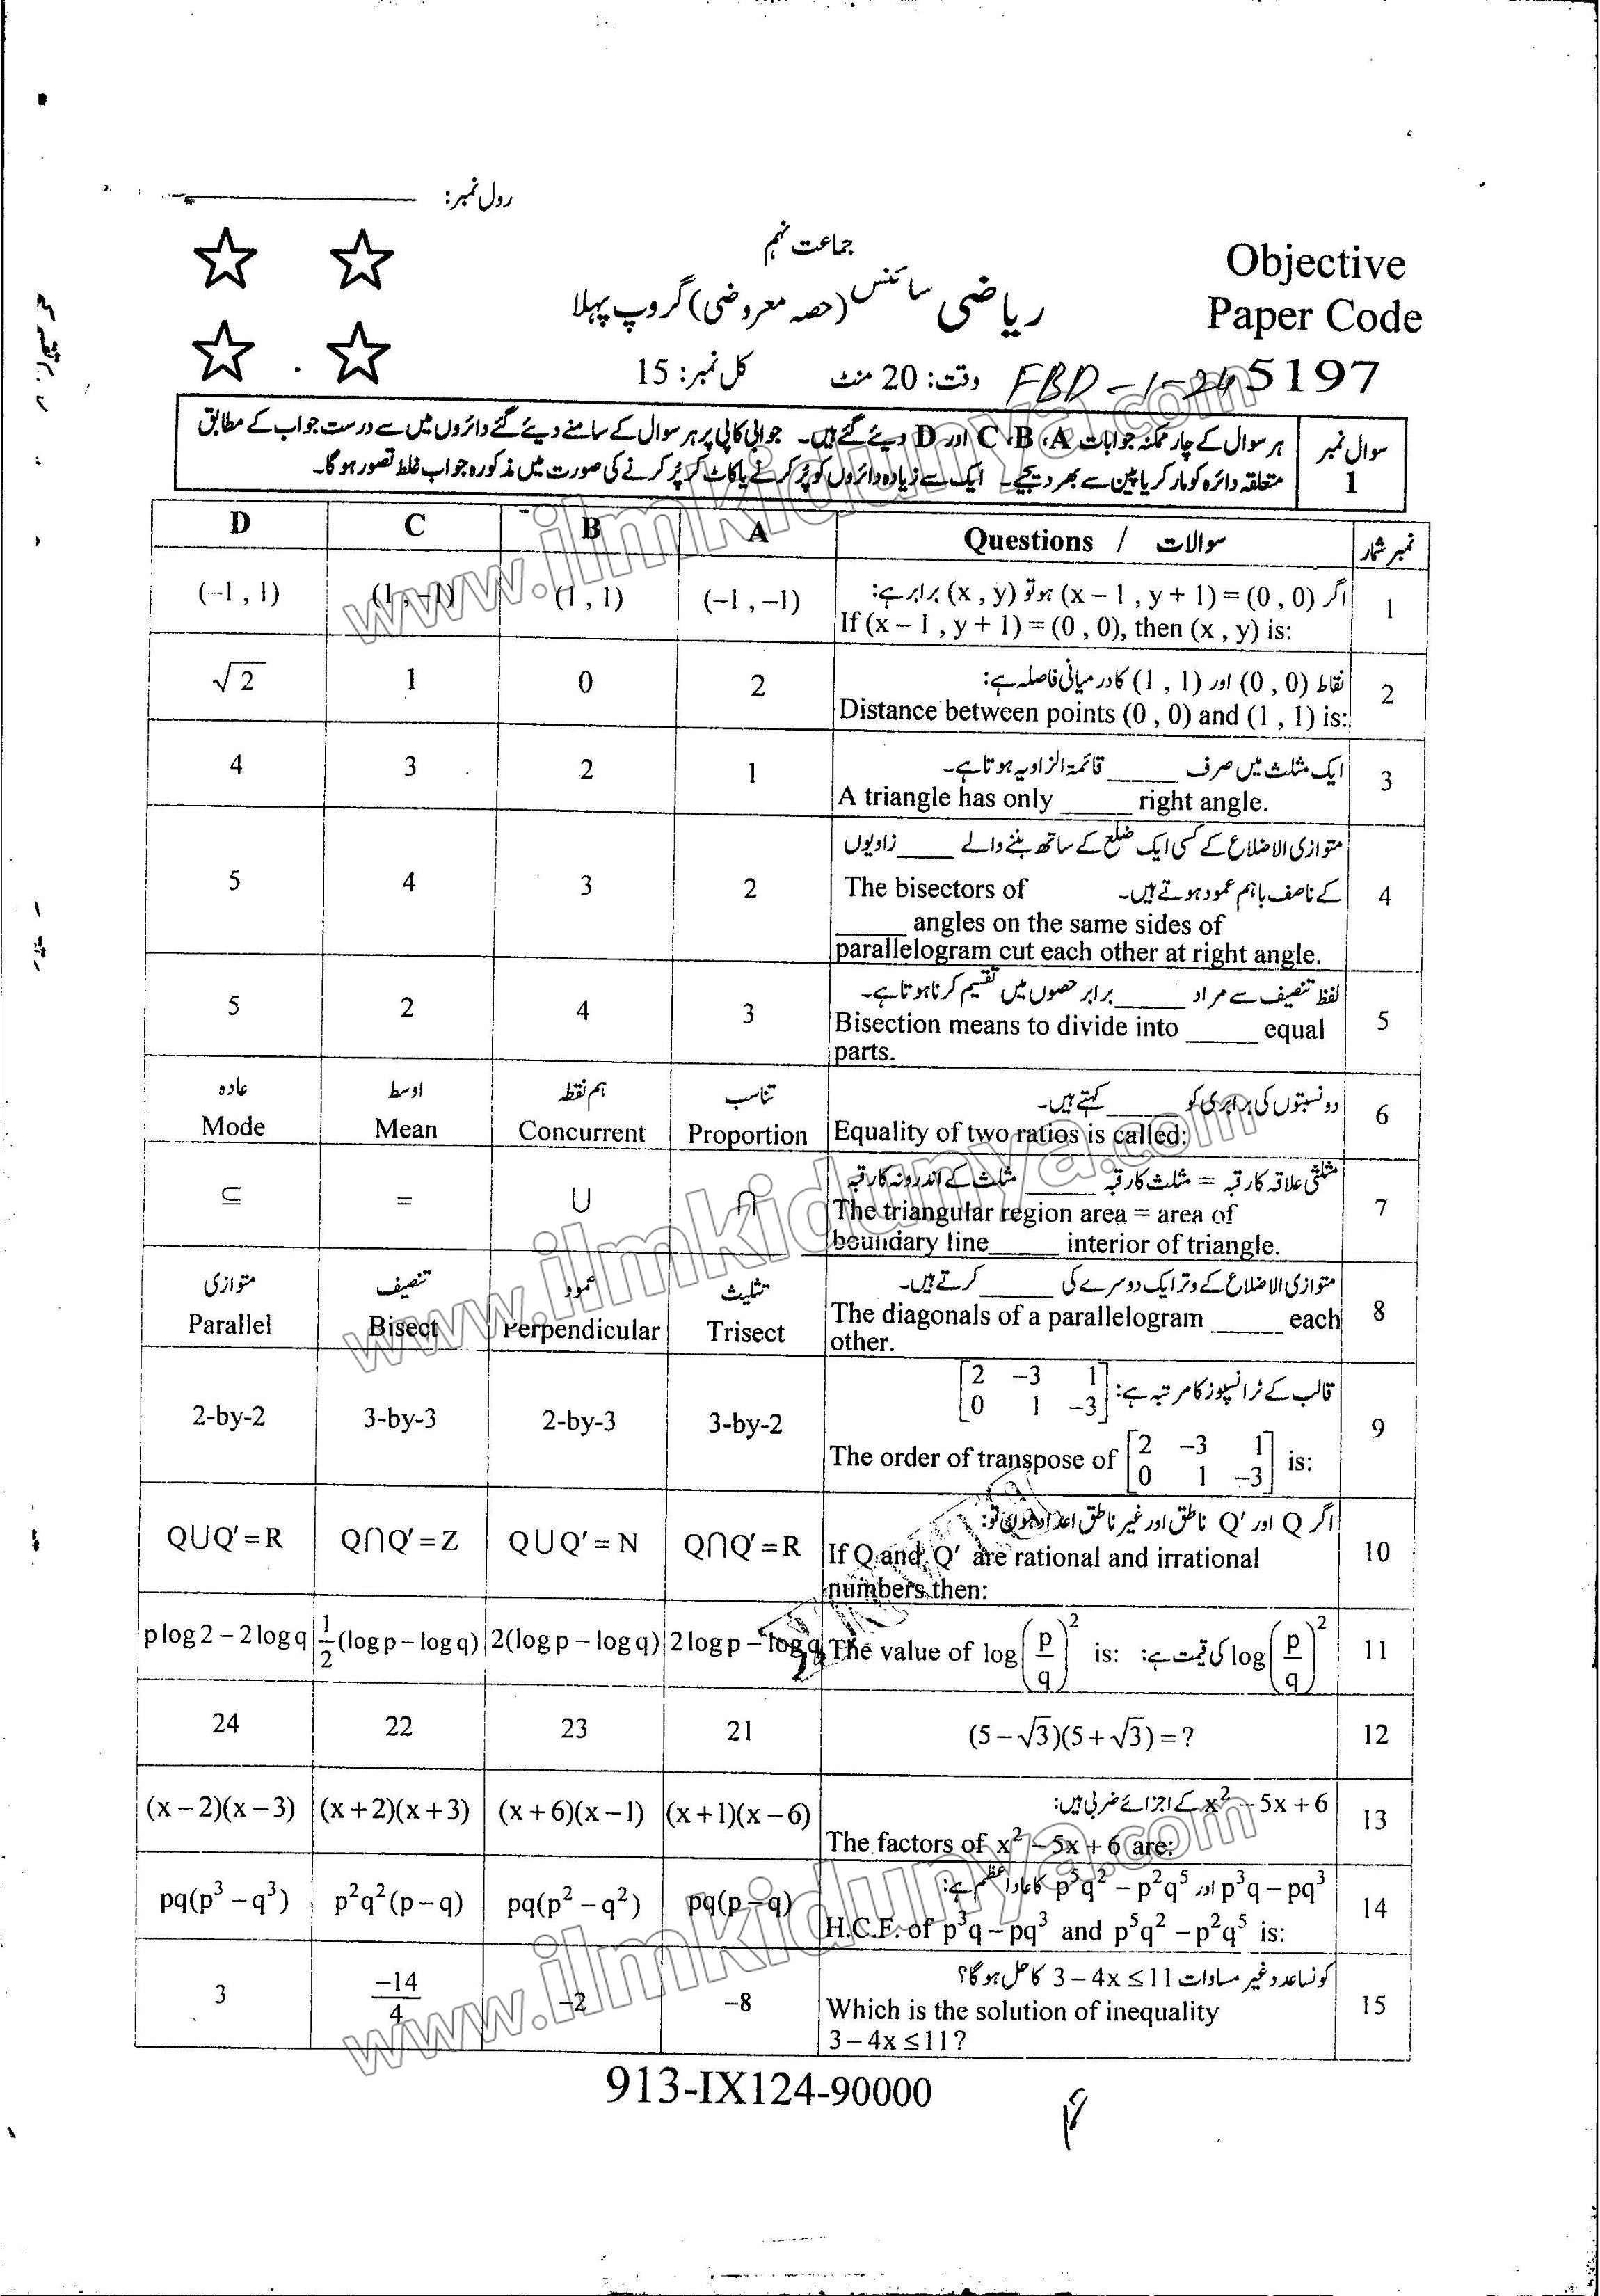 رول نمبر:
جماعت نہم
ریاضی سائنس (حصہ معروضی) گروپ پہلا
Objective
Paper Code
وقت: 20 منٹ کل نمبر: 15
FBD-1-24 5197
سوال نمبر 1
ہر سوال کے چار ممکنہ جوابات A، B، C اور D دیئے گئے ہیں۔ جوابی کاپی پر ہر سوال کے سامنے دیئے گئے دائروں میں سے درست جواب کے مطابق
متعلقہ دائرہ کو مارکر یا پین سے بھر دیجیے۔ ایک سے زیادہ دائروں کو پُر کرنے یا کاٹ کر پُر کرنے کی صورت میں مذکورہ جواب غلط تصور ہوگا۔
D C B A Questions / سوالات نمبر شمار
1 اگر (x – 1 , y + 1) = (0 , 0) ہو تو (x , y) برابر ہے:
If (x – 1 , y + 1) = (0 , 0), then (x , y) is:
(–1 , –1) (1 , 1) (1 , –1) (–1 , 1)
2 نقاط (0 , 0) اور (1 , 1) کا درمیانی فاصلہ ہے:
Distance between points (0 , 0) and (1 , 1) is:
2 0 1 √2
3 ایک مثلث میں صرف _____ قائمۃ الزاویہ ہوتا ہے۔
A triangle has only _____ right angle.
1 2 3 4
4 متوازی الاضلاع کے کسی ایک ضلع کے ساتھ بننے والے ____ زاویوں
کے ناصف باہم عمود ہوتے ہیں۔
The bisectors of
_____ angles on the same sides of
parallelogram cut each other at right angle.
2 3 4 5
5 لفظ تنصیف سے مراد _____ برابر حصوں میں تقسیم کرنا ہوتا ہے۔
Bisection means to divide into _____ equal
parts.
3 4 2 5
6 دو نسبتوں کی برابری کو _____ کہتے ہیں۔
Equality of two ratios is called:
تناسب ہم نقطہ اوسط عادہ
Proportion Concurrent Mean Mode
7 مثلثی علاقہ کا رقبہ = مثلث کا رقبہ _____ مثلث کے اندرونہ کا رقبہ
The triangular region area = area of
boundary line_____ interior of triangle.
∩ ∪ = ⊆
8 متوازی الاضلاع کے وتر ایک دوسرے کی _____ کرتے ہیں۔
The diagonals of a parallelogram _____ each
other.
تثلیث عمود تنصیف متوازی
Trisect Perpendicular Bisect Parallel
9 قالب کے ٹرانسپوز کا مرتبہ ہے: [2 –3 1; 0 1 –3]
The order of transpose of [2 –3 1; 0 1 –3] is:
3-by-2 2-by-3 3-by-3 2-by-2
10 اگر Q اور Q′ ناطق اور غیر ناطق اعداد ہوں تو:
If Q and Q′ are rational and irrational
numbers then:
Q∩Q′ = R Q∪Q′ = N Q∩Q′ = Z Q∪Q′ = R
11 log(p/q)² کی قیمت ہے: The value of log(p/q)² is:
2 log p – log q 2(log p – log q) 1/2 (log p – log q) p log 2 – 2 log q
12 (5 – √3)(5 + √3) = ?
21 23 22 24
13 x² – 5x + 6 کے اجزائے ضربی ہیں:
The factors of x² – 5x + 6 are:
(x + 1)(x – 6) (x + 6)(x – 1) (x + 2)(x + 3) (x – 2)(x – 3)
14 p³q – pq³ اور p⁵q² – p²q⁵ کا عاد اعظم ہے:
H.C.F. of p³q – pq³ and p⁵q² – p²q⁵ is:
pq(p – q) pq(p² – q²) p²q²(p – q) pq(p³ – q³)
15 کونسا عدد غیر مساوات 3 – 4x ≤ 11 کا حل ہوگا؟
Which is the solution of inequality
3 – 4x ≤ 11?
–8 –2 –14/4 3
913-IX124-90000
www.ilmkidunya.com
www.ilmkidunya.com
www.ilmkidunya.com